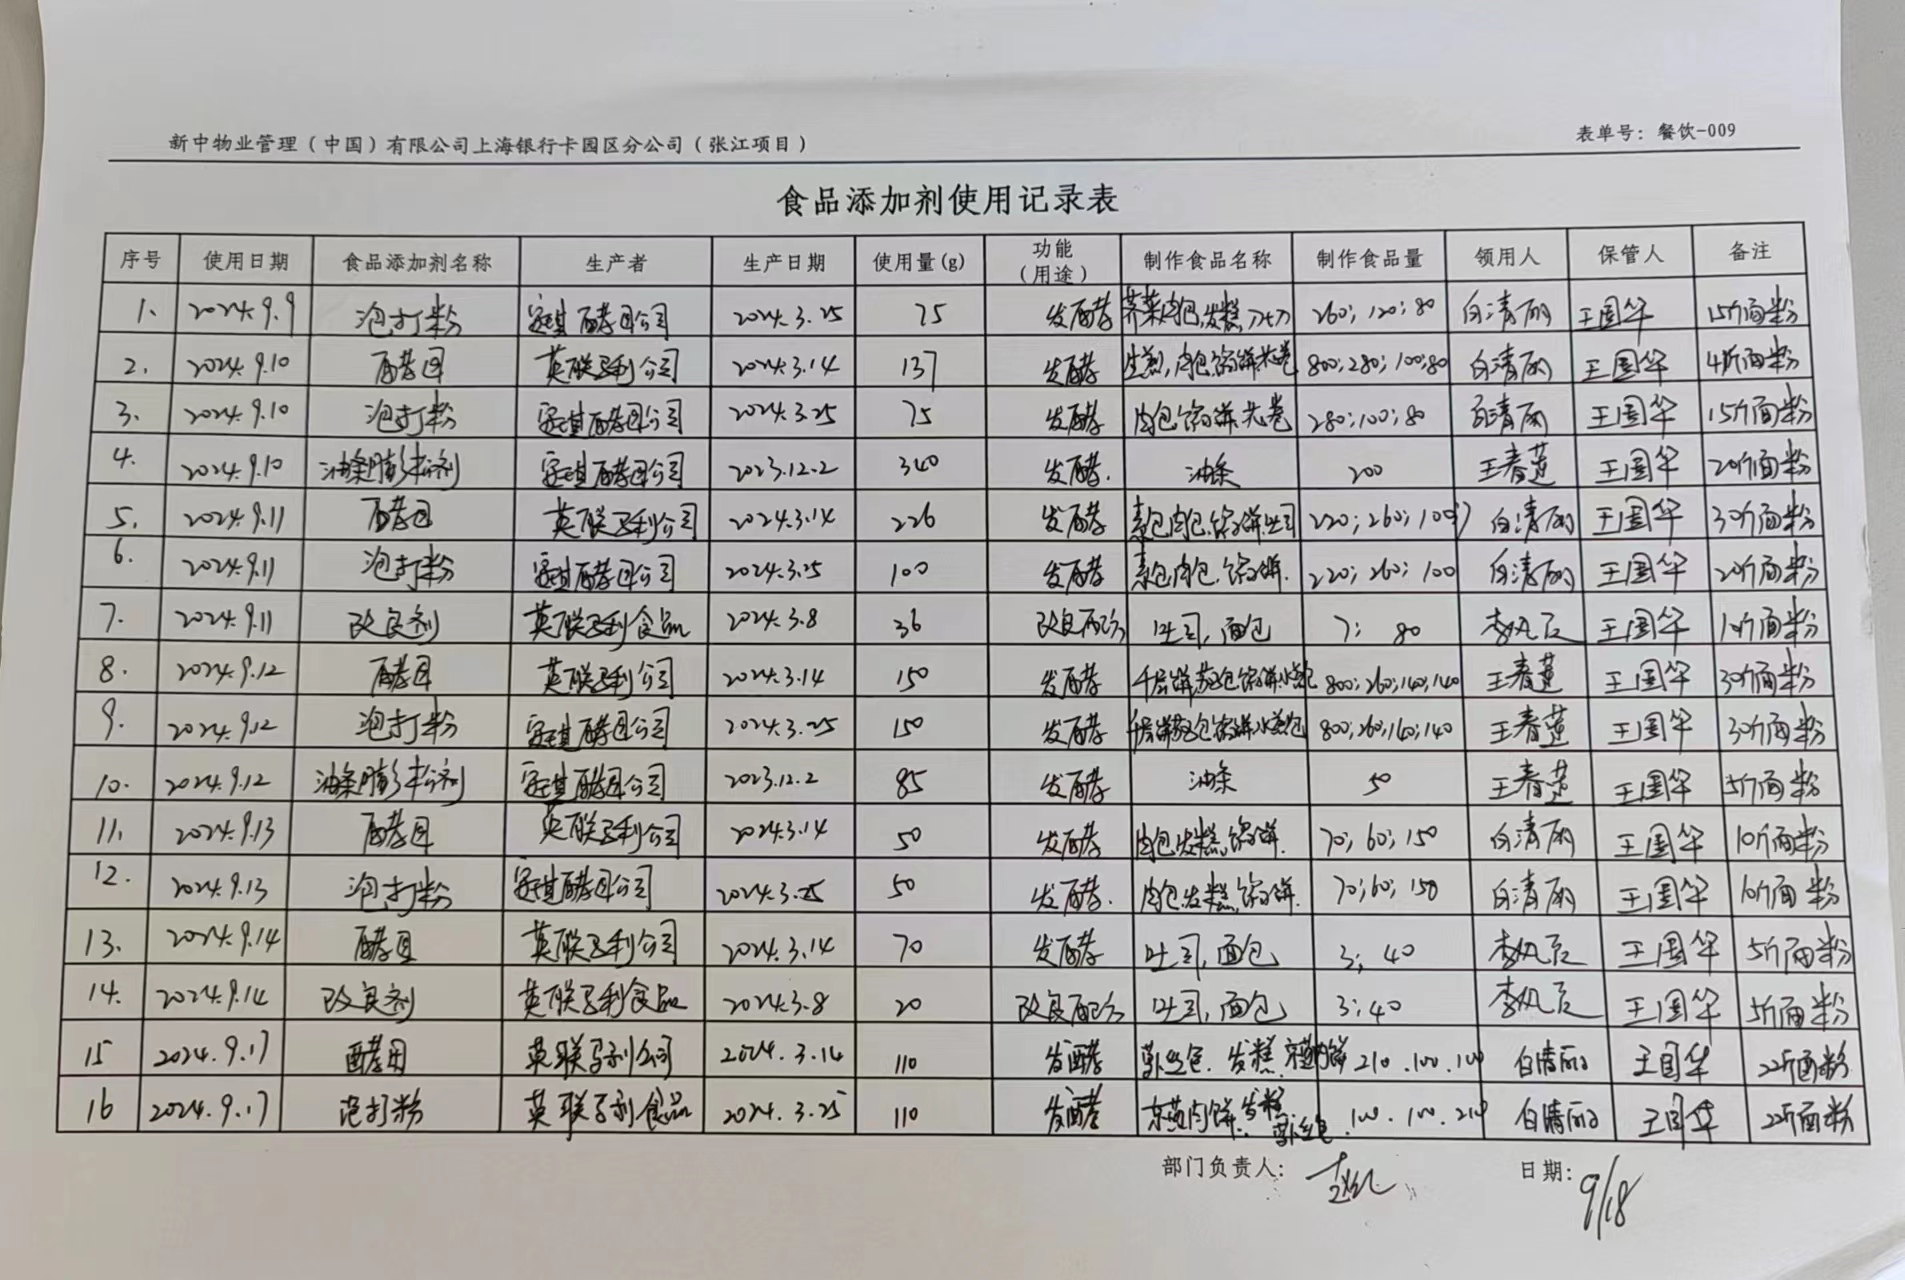 新中物业管理（中国）有限公司上海银行卡园区分公司（张江项目） 表单号：餐饮-009
食品添加剂使用记录表
序号 使用日期 食品添加剂名称 生产者 生产日期 使用量(g) 功能（用途） 制作食品名称 制作食品量 领用人 保管人 备注
1. 2024.9.9 泡打粉 安琪酵母公司 2024.3.25 75 发酵 荠菜肉包,发糕,刀切 260;120;80 白清丽 王国华 15斤面粉
2. 2024.9.10 酵母 英联马利公司 2024.3.14 137 发酵 生煎,肉包,馅饼,花卷 800;280;100;80 白清丽 王国华 4斤面粉
3. 2024.9.10 泡打粉 安琪酵母公司 2024.3.25 75 发酵 肉包,馅饼,花卷 280;100;80 白清丽 王国华 15斤面粉
4. 2024.9.10 油条膨松剂 安琪酵母公司 2023.12.2 340 发酵. 油条 200 王春莲 王国华 20斤面粉
5. 2024.9.11 酵母 英联马利公司 2024.3.14 226 发酵 素包,肉包,馅饼,吐司 220;260;100 白清丽 王国华 30斤面粉
6. 2024.9.11 泡打粉 安琪酵母公司 2024.3.25 100 发酵 素包,肉包,馅饼. 220;260;100 白清丽 王国华 20斤面粉
7. 2024.9.11 改良剂 英联马利食品 2024.3.8 36 改良 吐司,面包 7; 80 王国华 10斤面粉
8. 2024.9.12 酵母 英联马利公司 2024.3.14 150 发酵 千层饼 馅饼 800;260;140;140 王春莲 王国华 30斤面粉
9. 2024.9.12 泡打粉 安琪酵母公司 2024.3.25 150 发酵 千层饼 馅饼 800;260;140;140 王春莲 王国华 30斤面粉
10. 2024.9.12 油条膨松剂 安琪酵母公司 2023.12.2 85 发酵 油条 50 王春莲 王国华 5斤面粉
11. 2024.9.13 酵母 英联马利公司 2024.3.14 50 发酵 肉包,发糕,馅饼. 70;60;150 白清丽 王国华 10斤面粉
12. 2024.9.13 泡打粉 安琪酵母公司 2024.3.25 50 发酵. 肉包,发糕,馅饼. 70;60;150 白清丽 王国华 10斤面粉
13. 2024.9.14 酵母 英联马利公司 2024.3.14 70 发酵 吐司,面包 3; 40 王国华 5斤面粉
14. 2024.9.14 改良剂 英联马利食品 2024.3.8 20 改良 吐司,面包 3;40 王国华 5斤面粉
15 2024.9.17 酵母 英联马利公司 2024.3.14 110 发酵 萝卜丝包.发糕. 210.100.100 白清丽 王国华 22斤面粉
16 2024.9.17 泡打粉 英联马利食品 2024.3.25 110 发酵 肉饼.发糕 萝卜丝包 100.100.210 白清丽 王国华 22斤面粉
部门负责人： 日期：9/18